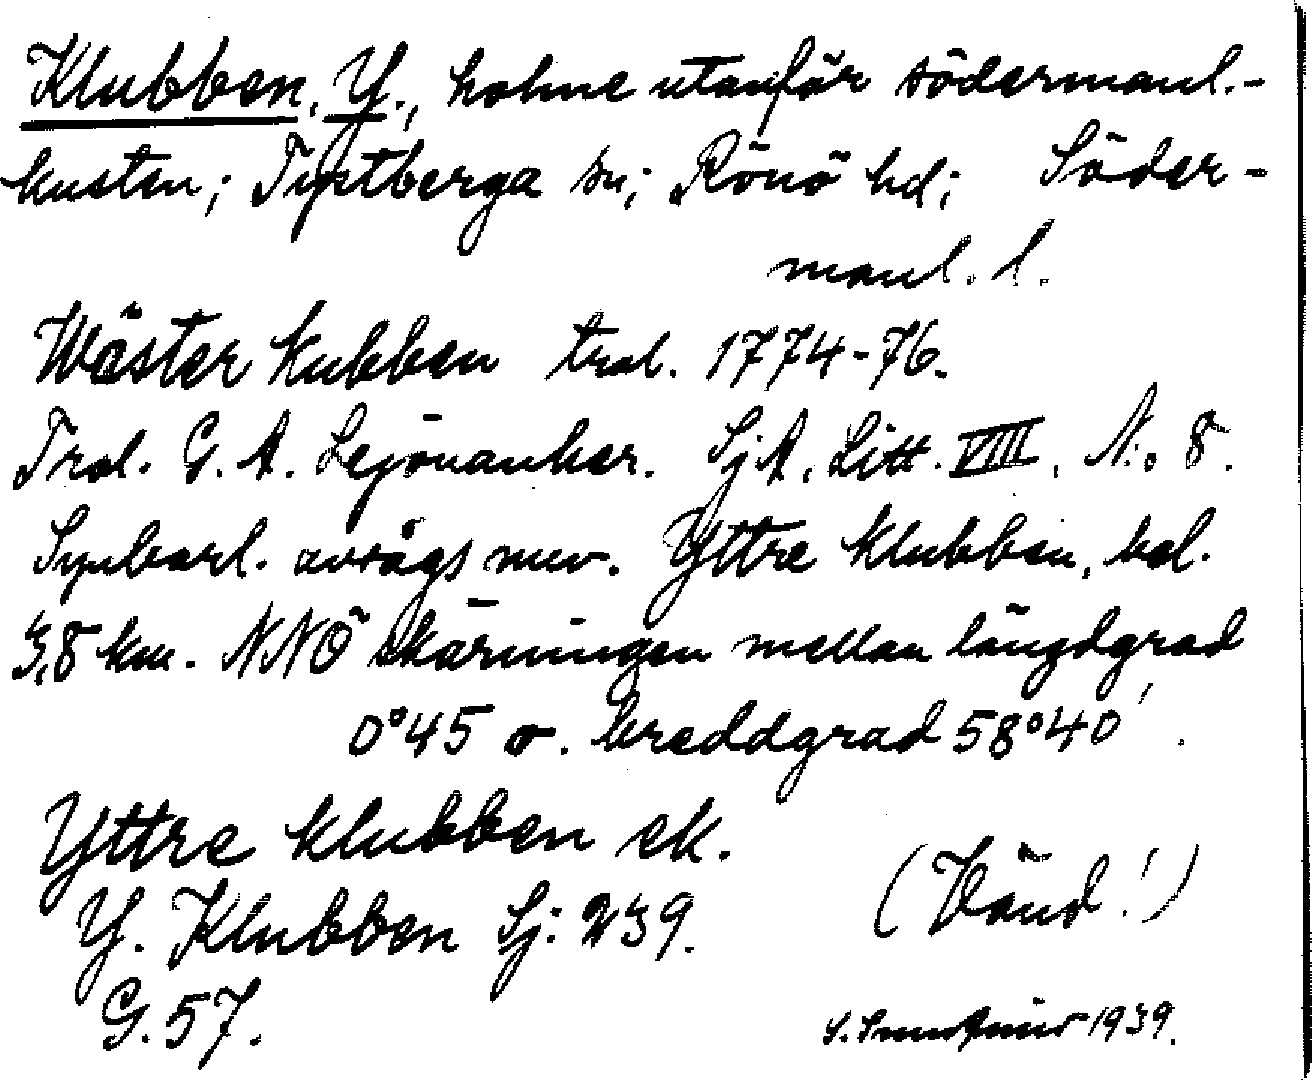 Klubben, Y., holme utanför södermanl.-
kusten; Tystberga sn; Rönö hd; Söder-
manl. l.
Wäster Kubben trol. 1774-76.
Trol. G. A. Lejonanker. SjA, Litt. VIII, N:o 8.
Synbarl. avvägs nuv. Yttre Klubben, bel.
3,8 km. NNÖ skärningen mellan längdgrad
0°45 o. breddgrad 58°40'.
Yttre Klubben ek.
Y. Klubben Sj: 239.
G. 57.
(Vänd!)
1939.